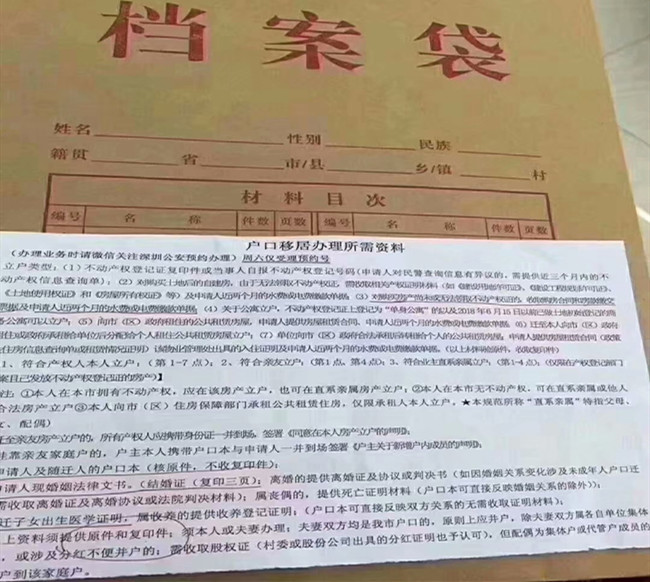 档案袋
姓名 性别 民族
籍贯 省 市/县 乡/镇 村
材料目次
编号 名 称 件数 页数 编号 名 称 件数 页数
户口移居办理所需资料
(办理业务时请微信关注深圳公安预约办理) 周六仅受理预约号
立户类型:(1)不动产权登记证复印件或当事人自报不动产权登记号码(申请人对民警查询信息有异议的,需提供近三个月内的不
动产权信息查询单);(2)对购买土地后的自建房,由于无法领取不动产权证,需收取相关产权证明材料
《土地使用权证》和《房屋所有权证》等)及申请人近两个月的水费或电费缴款单据;(3)对购买房产尚未或无法领取不动产权的,
票据及申请人近两个月的水费或电费缴款单据;(4)关于公寓立户,不动产权登记证上登记为“单身公寓”的以及2018年6月15日以前已做土地
务公寓可以立户;(5)向市(区)政府租住的公共租赁房屋,申请人提供房屋租赁合同、申请人近两个月的水费或电费缴款单据;(6)迁至本人向市(区)政府
;(7)单位向市(区)政府
住房信息查询单或租赁情况证明)
1、符合产权人本人立户;(第1-7点);2、符合亲友立户;(第1点,第4点);3、符合业主直系亲属立户;(第1-4点);(仅限在产权登记部门
案且已发放不动产权登记证的房产)】
注:①本人在本市拥有不动产权,应在该房产立户,也可在直系亲属房产立户;②本人在本市无不动产权,可在直系亲属或他人
合法房产立户③本人向市(区)住房保障部门承租公共租赁住房,仅限承租人本人立户。★本规范所称“直系亲属”特指父母、
女、配偶)
迁至亲友房产立户的,所有产权人应携带身份证一并到场,签署《同意在本人房产立户的声明》;
挂靠亲友家庭户的,户主本人携带户口本与申请人一并到场签署《户主关于新增户内成员的声明》;
申请人及随迁人的户口本(核原件,不收复印件);
申请人现婚姻法律文书。(结婚证(复印三页);离婚的提供离婚证及协议或判决书(如因婚姻关系变化涉及未成年人户口迁
需收取离婚证及离婚协议或法院判决材料);属丧偶的,提供死亡证明材料(户口本可直接反映婚姻关系的除外));
迁子女出生医学证明,属收养的提供收养登记证明;(户口本可直接反映双方关系的无需收取证明材料);
上资料须提供原件和复印件;须本人或夫妻办理;夫妻双方均是我市户口的,原则上应并户,除夫妻双方属各自单位集体
,或涉及分红不便并户的;需收取股权证(村委或股份公司出具的分红证明也予认可),但配偶为集体户或代管户成员的
户到该家庭户。